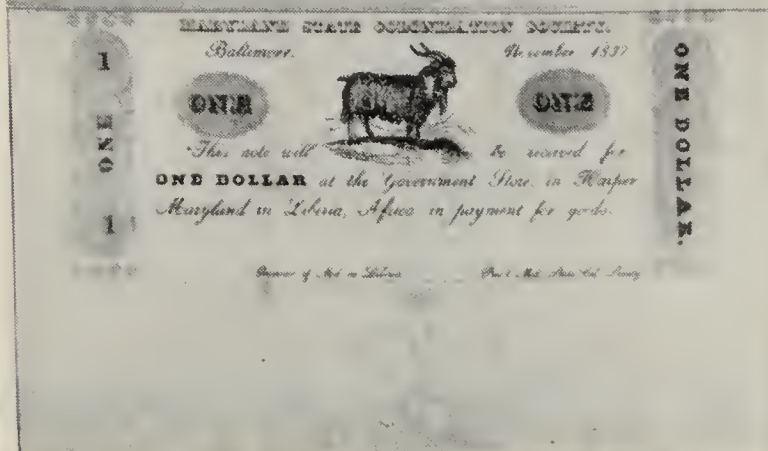 MARYLAND STATE COLONIZATION SOCIETY.
Baltimore. November 1837
1 ONE 1
ONE ONE
ONE DOLLAR.
This note will be received for
ONE DOLLAR at the Government Store, in Harper
Maryland in Liberia, Africa in payment for goods.
Governor of Md. in Liberia Pres't Md. State Col. Society